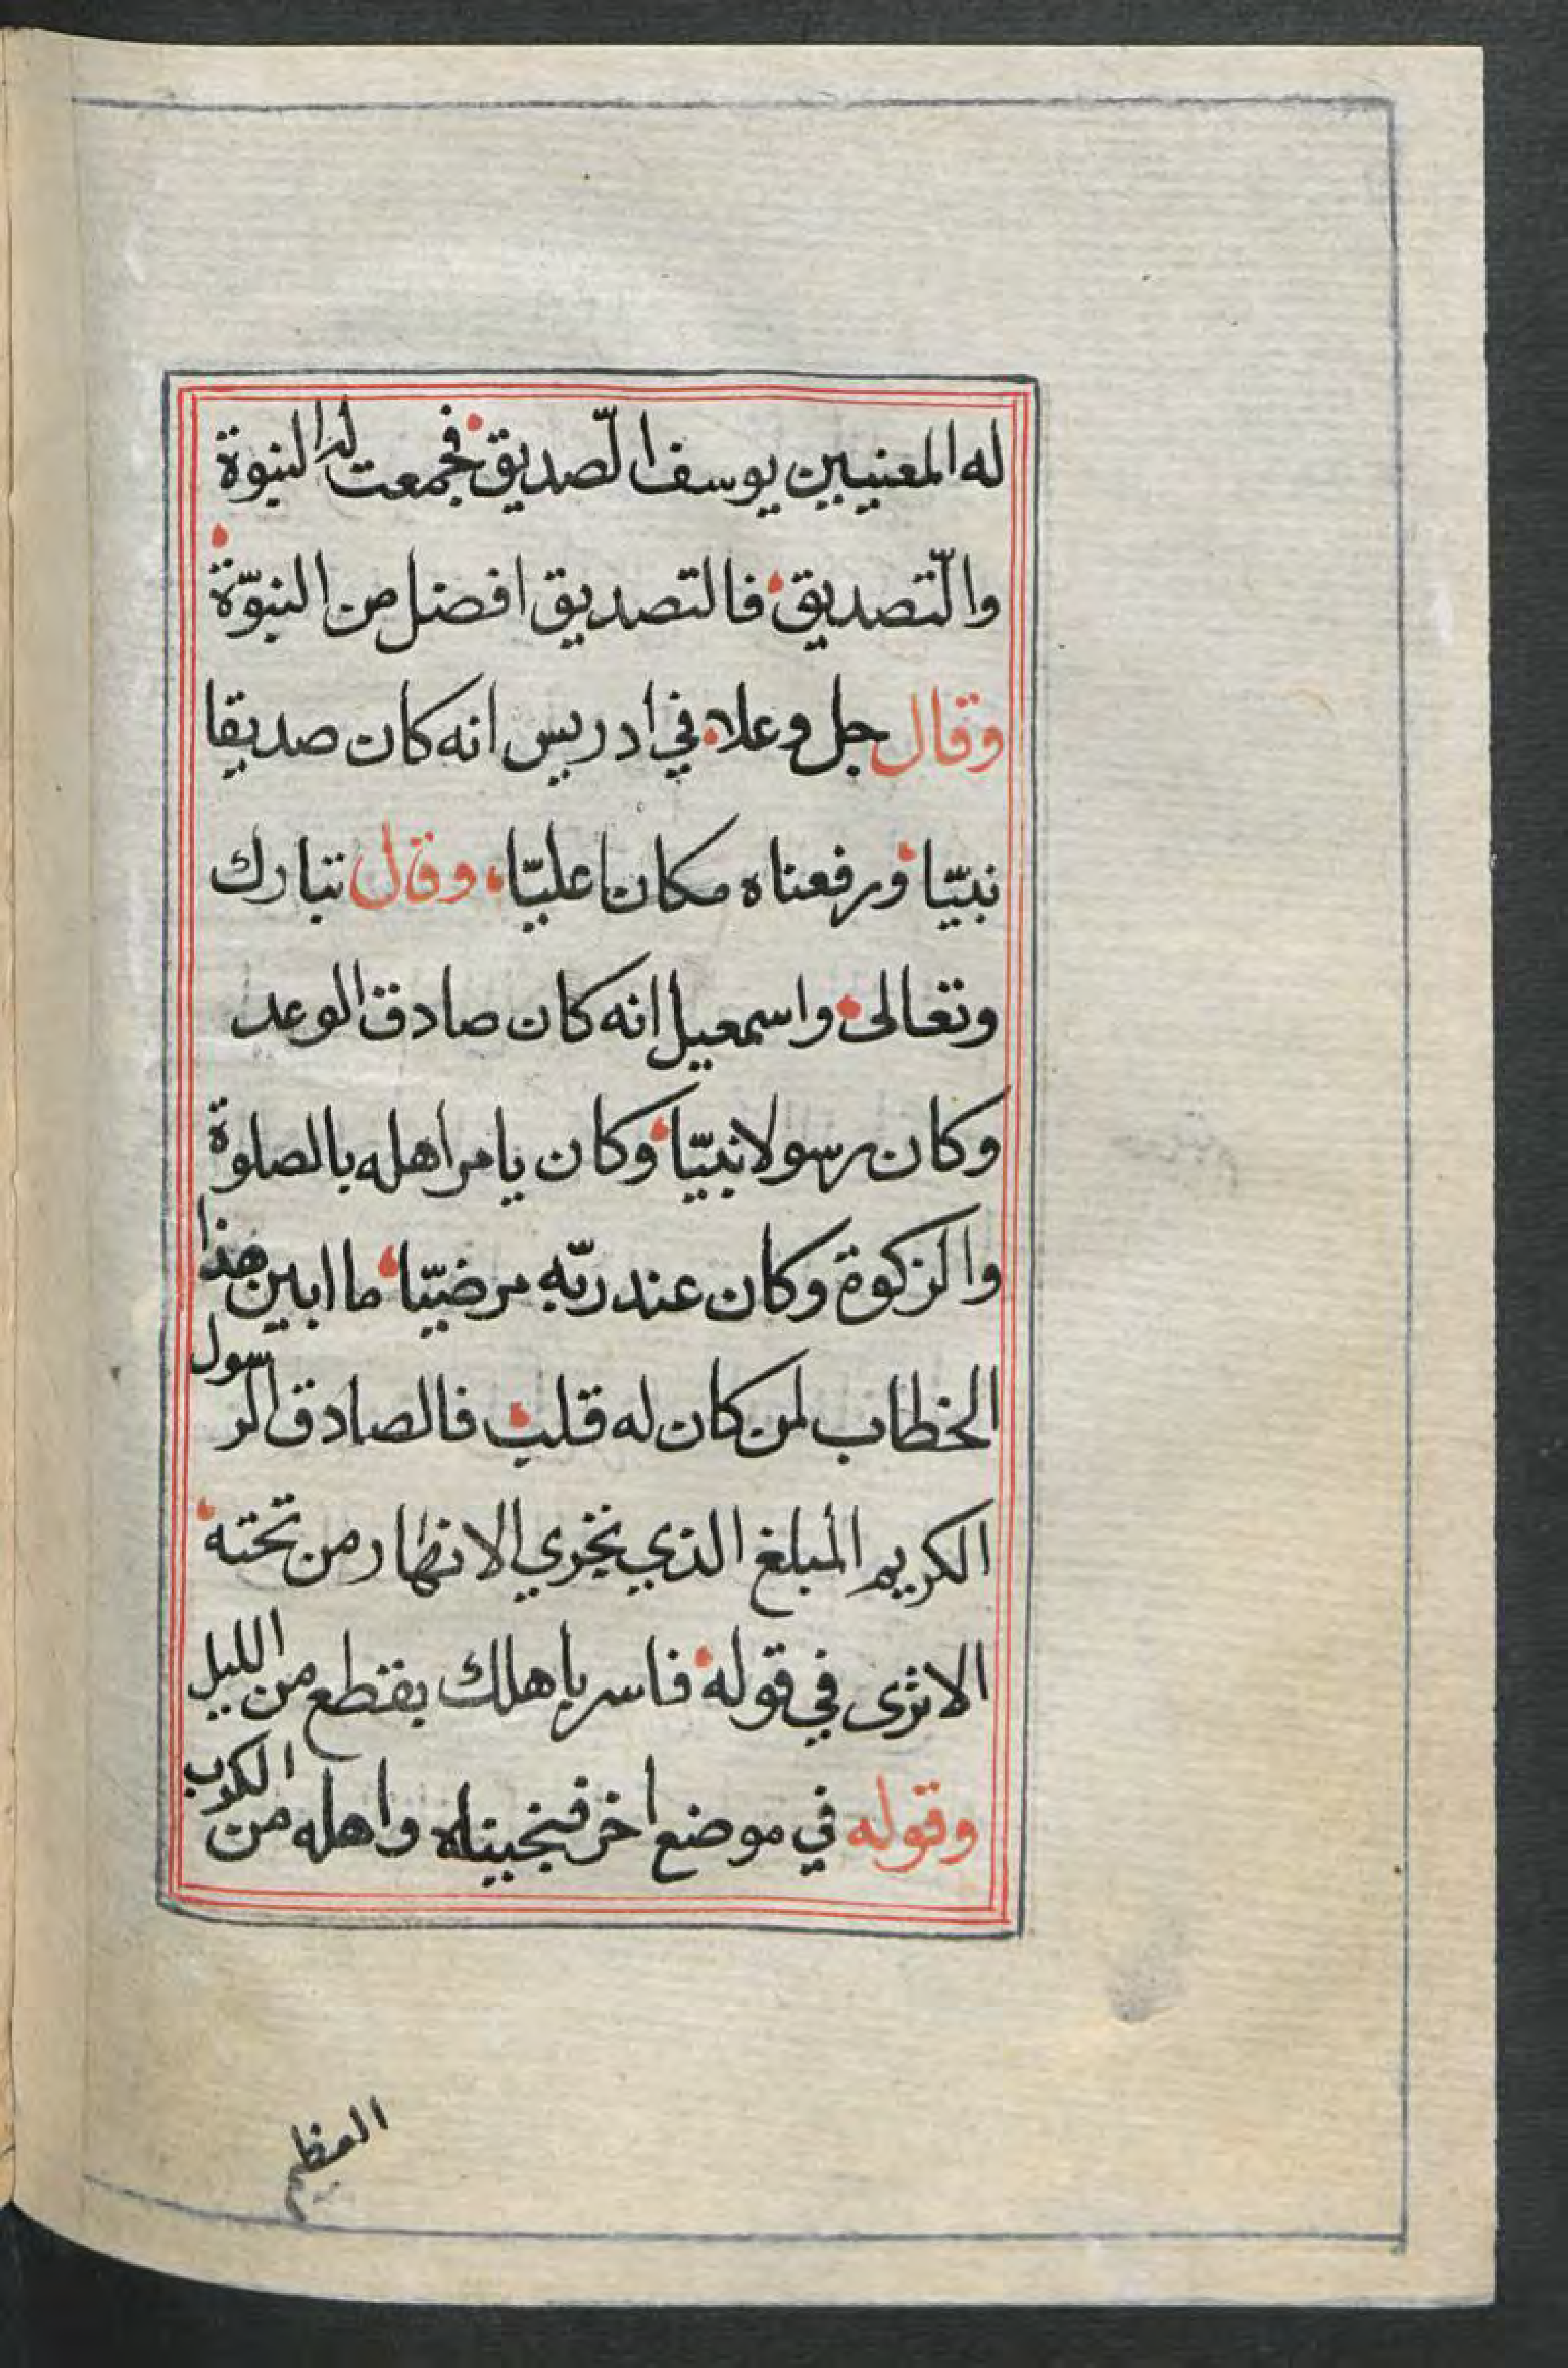 له المعنيين يوسف الصّديق فجمعت له النبوة
والتّصديق فالتصديق افضل من النبوّة
وقال جل وعلا في ادريس انه كان صديقا
نبيّا ورفعناه مكانا عليّا وقال تبارك
وتعالى واسمعيل انه كان صادق الوعد
وكان رسولا نبيّا وكان يامر اهله بالصلوة
والزكوة وكان عند ربّه مرضيّا ما ابين هذا
الخطاب لمن كان له قلب فالصادق الرسول
الكريم المبلغ الذي تجري الانهار من تحته
الا ترى في قوله فاسر باهلك بقطع من الليل
وقوله في موضع اخر فنجيناه واهله من الكرب
العظيم